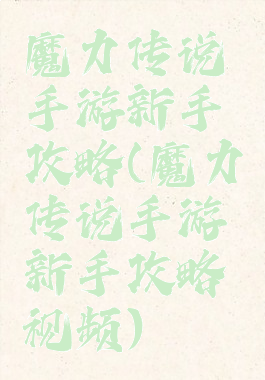 魔力传说
手游新手
攻略(魔力
传说手游
新手攻略
视频)